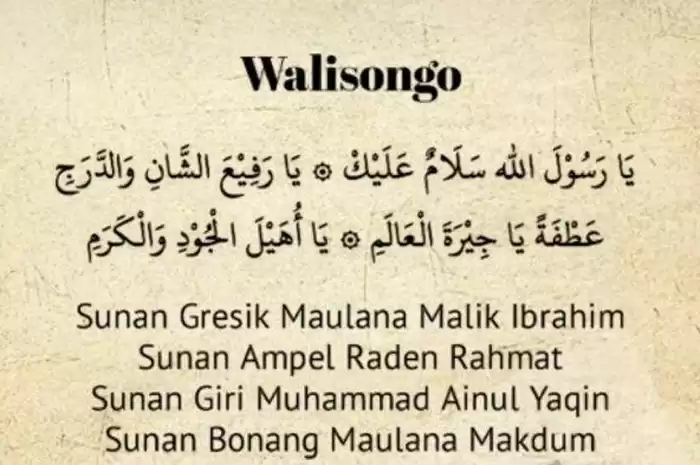 Walisongo
يَا رَسُوْلَ الله سَلَامٌ عَلَيْكْ ۞ يَا رَفِيْعَ الشَّانِ وَالدَّرَجِ
عَطْفَةً يَا جِيْرَةَ الْعَالَمِ ۞ يَا أُهَيْلَ الْجُوْدِ وَالْكَرَمِ
Sunan Gresik Maulana Malik Ibrahim
Sunan Ampel Raden Rahmat
Sunan Giri Muhammad Ainul Yaqin
Sunan Bonang Maulana Makdum